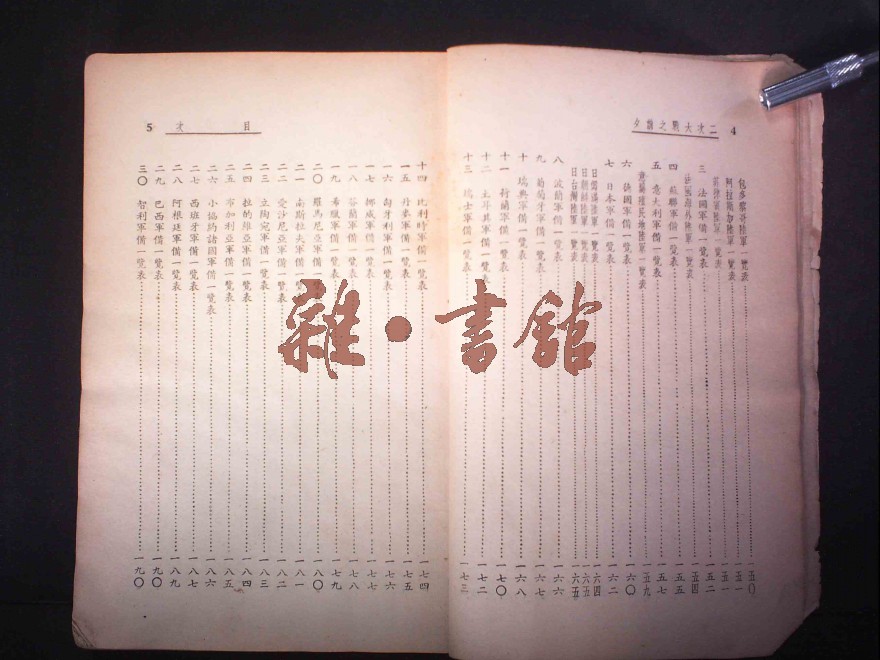 二次大戰之前夕 4
包多黎哥陸軍一覽表 一五〇
阿拉斯加陸軍一覽表 一五一
陸軍一覽表 一五一
三 法國軍備一覽表 一五二
法國海外陸軍一覽表 一五四
四 蘇聯軍備一覽表 一五五
五 意大利軍備一覽表 一五七
意屬殖民地陸軍一覽表 一五九
六 德國軍備一覽表 一六〇
七 日本軍備一覽表 一六二
日偽滿陸軍一覽表 一六四
日朝鮮陸軍一覽表 一六五
日台灣陸軍一覽表 一六五
八 波蘭軍備一覽表 一六六
九 葡萄牙軍備一覽表 一六七
十 瑞典軍備一覽表 一六八
十一 荷蘭軍備一覽表 一七〇
十二 土耳其軍備一覽表 一七二
十三 瑞士軍備一覽表 一七三
目次 5
十四 比利時軍備一覽表 一七四
一五 丹麥軍備一覽表 一七五
一六 匈牙利軍備一覽表 一七六
一七 挪威軍備一覽表 一七七
一八 芬蘭軍備一覽表 一七八
一九 希臘軍備一覽表 一七九
二〇 羅馬尼亞軍備一覽表 一八〇
二一 南斯拉夫軍備一覽表 一八一
二二 愛沙尼亞軍備一覽表 一八二
二三 立陶宛軍備一覽表 一八三
二四 拉的維亞軍備一覽表 一八四
二五 布加利亞軍備一覽表 一八五
二六 小協約諸國軍備一覽表 一八六
二七 西班牙軍備一覽表 一八七
二八 阿根廷軍備一覽表 一八九
二九 巴西軍備一覽表 一九〇
三〇 智利軍備一覽表 一九〇
雜·書館